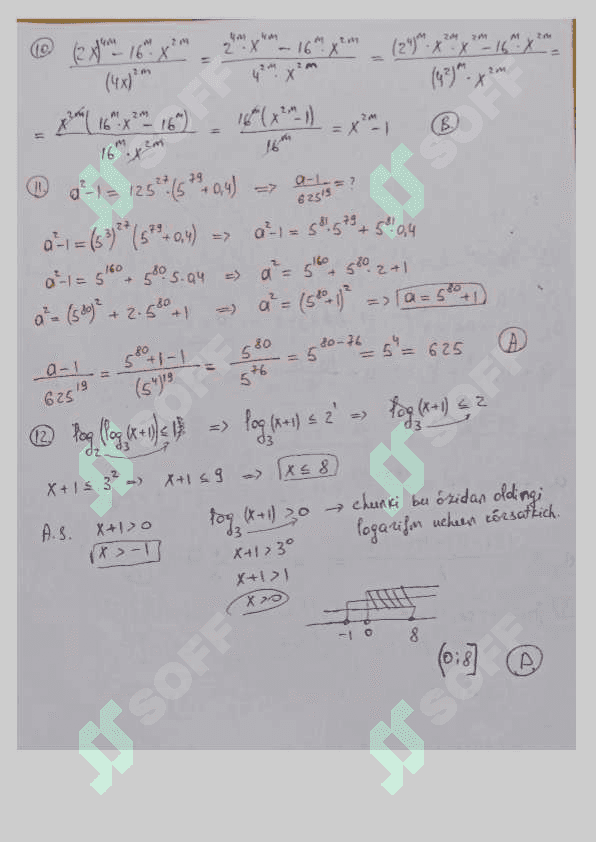 10. (2x)^4m − 16^m · x^2m / (4x)^2m = 2^4m · x^4m − 16^m · x^2m / 4^2m · x^2m = (2^4)^m · x^2m · x^2m − 16^m · x^2m / (4^2)^m · x^2m =
= x^2m (16^m · x^2m − 16^m) / 16^m · x^2m = 16^m (x^2m − 1) / 16^m = x^2m − 1 (B)
11. a^2−1 = 125^27 · (5^79 + 0,4) => a−1 / 625^19 = ?
a^2−1 = (5^3)^27 (5^79 + 0,4) => a^2−1 = 5^81 · 5^79 + 5^81 · 0,4
a^2−1 = 5^160 + 5^80 · 5 · 0,4 => a^2 = 5^160 + 5^80 · 2 + 1
a^2 = (5^80)^2 + 2 · 5^80 + 1 => a^2 = (5^80+1)^2 => a = 5^80 + 1
a−1 / 625^19 = 5^80 + 1 − 1 / (5^4)^19 = 5^80 / 5^76 = 5^80−76 = 5^4 = 625 (A)
12. log_2 (log_3 (x+1) ≤ 1 => log_3 (x+1) ≤ 2^1 => log_3 (x+1) ≤ 2
x+1 ≤ 3^2 => x+1 ≤ 9 => x ≤ 8
A.S. x+1 > 0 log_3 (x+1) > 0 → chunki bu o'zidan oldingi
logarifm uchun ko'rsatkich.
x > −1 x+1 > 3^0
x+1 > 1
x > 0
−1 0 8
(0;8] (A)
SOFF
SOFF
SOFF
SOFF
SOFF
SOFF
SOFF
SOFF